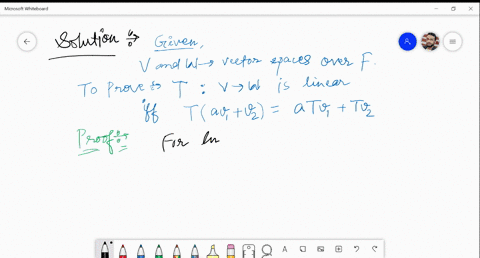 Microsoft Whiteboard
Solution :→ Given,
V and W → vector spaces over F.
To Prove → T : V → W is linear
iff T(av₁ + v₂) = aTv₁ + Tv₂
Proof :→ For lin